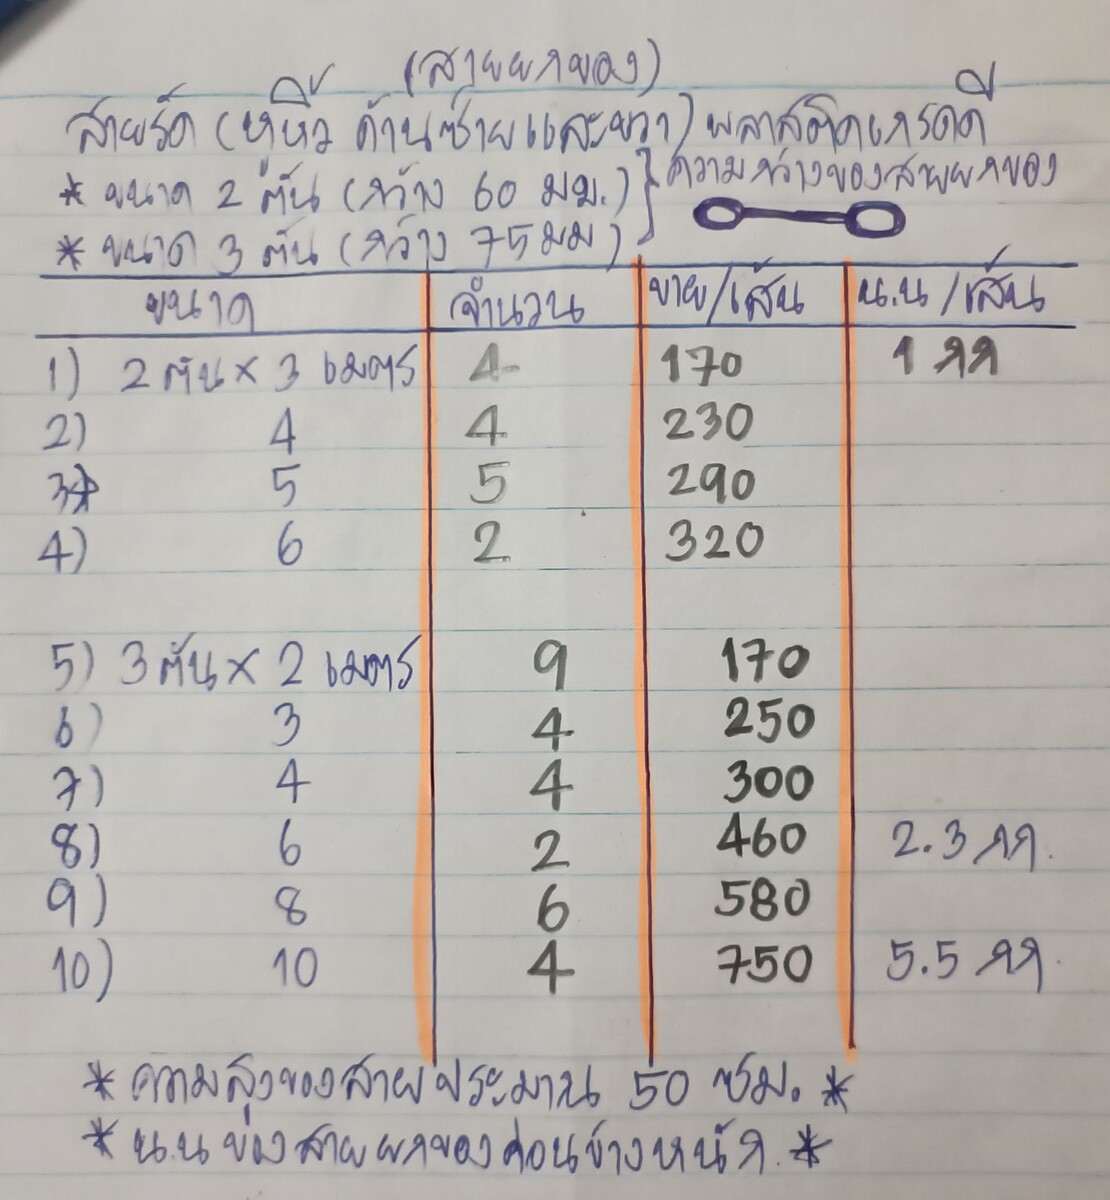 (สายยกของ)
สายรัด (หูหิ้ว ด้านซ้ายและขวา) พลาสติดเกรดดี
* ขนาด 2 ตัน (กว้าง 60 มม.) } ความกว้างของสายยกของ
* ขนาด 3 ตัน (กว้าง 75 มม)
ขนาด จำนวน ขาย/เส้น น.น/เส้น
1) 2 ตัน x 3 เมตร 4 170 1 กก
2) 4 4 230
3) 5 5 290
4) 6 2 320
5) 3 ตัน x 2 เมตร 9 170
6) 3 4 250
7) 4 4 300
8) 6 2 460 2.3 กก.
9) 8 6 580
10) 10 4 750 5.5 กก.
* ความสูงของสายประมาน 50 ซม. *
* น.น ของสายยกของค่อนข้างหนัก. *